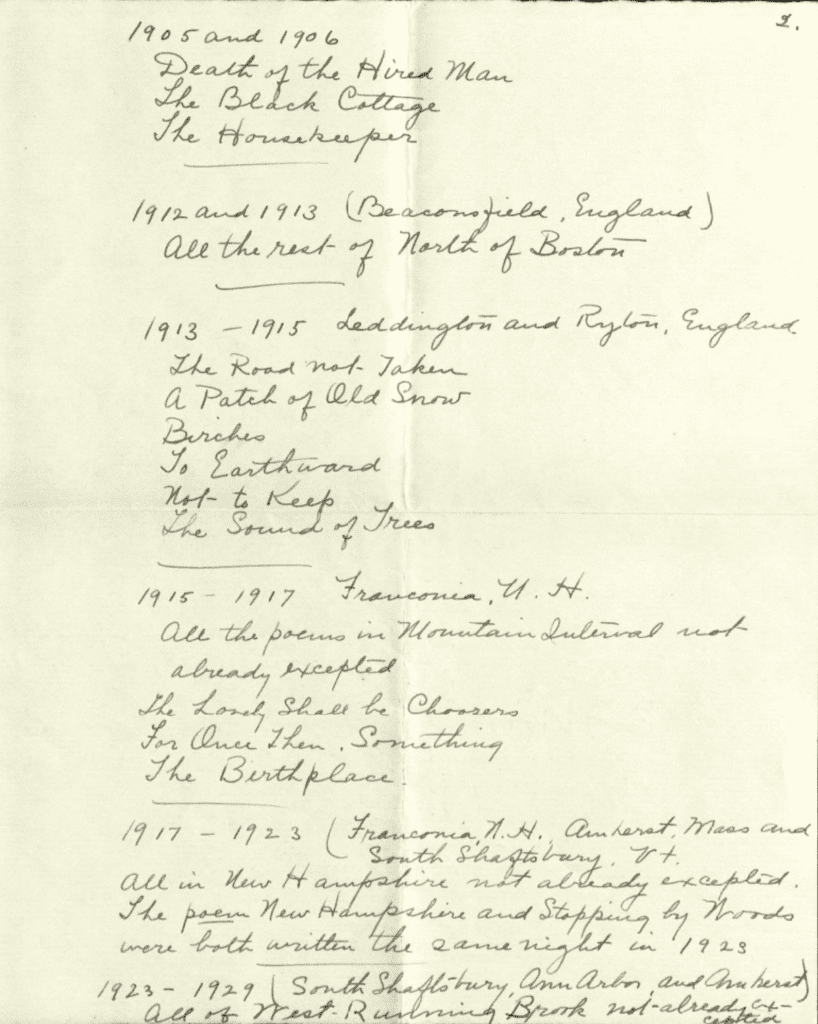 2.
1905 and 1906
Death of the Hired Man
The Black Cottage
The Housekeeper
1912 and 1913 (Beaconsfield, England)
All the rest of North of Boston
1913 - 1915 Leddington and Ryton, England.
The Road not Taken
A Patch of Old Snow
Birches
To Earthward
Not to Keep
The Sound of Trees
1915 - 1917 Franconia, N. H.
All the poems in Mountain Interval not
already excepted
The Lovely Shall be Choosers
For Once Then, Something
The Birthplace.
1917 - 1923 (Franconia, N.H., Amherst, Mass and
South Shaftsbury, Vt.
All in New Hampshire not already excepted.
The poem New Hampshire and Stopping by Woods
were both written the same night in 1923
1923 - 1929 (South Shaftsbury, Ann Arbor, and Amherst)
All of West-Running Brook not already ex-
cepted